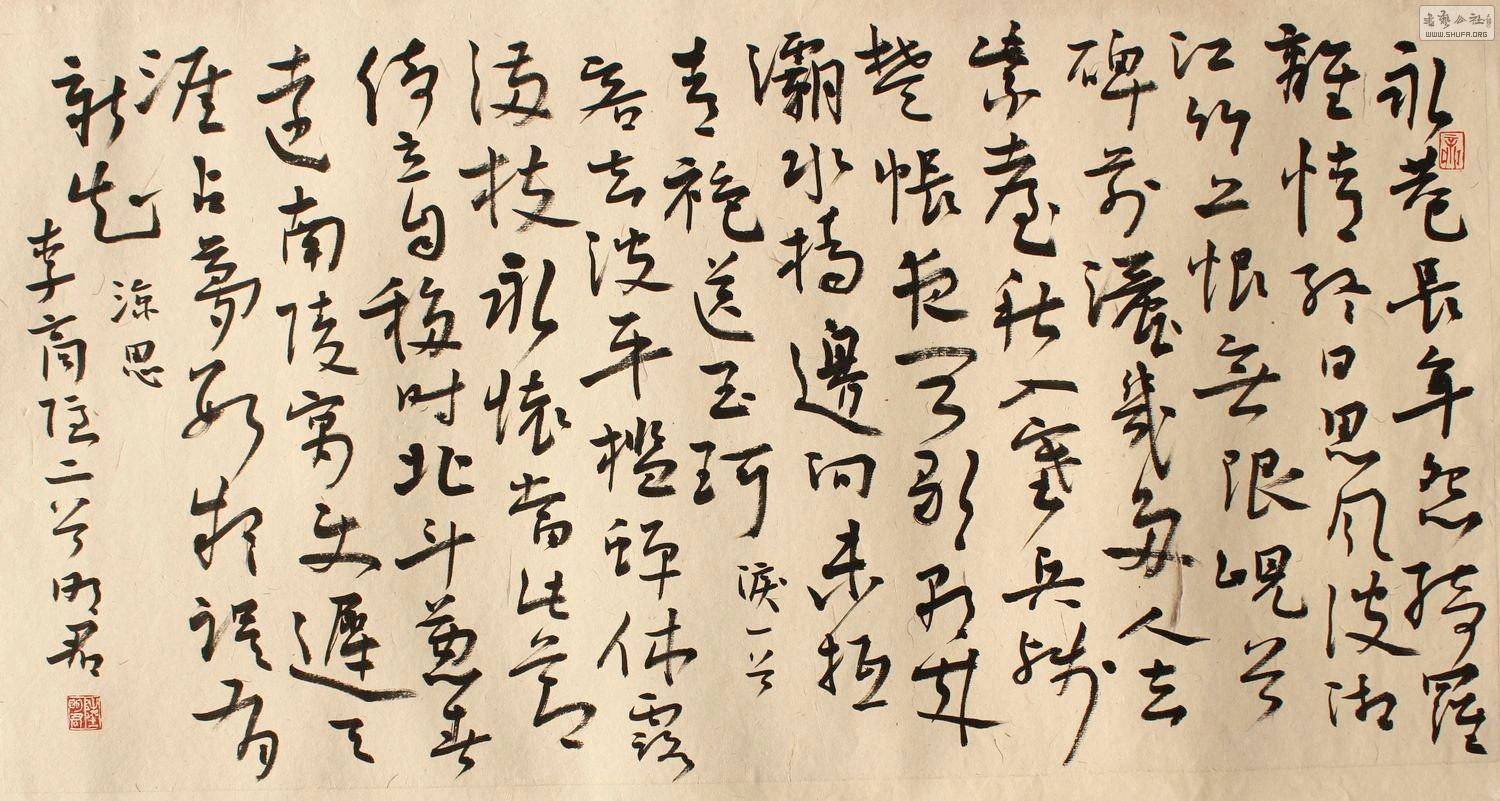 永巷長年怨綺羅
離情終日思風波湘
江竹上恨無限峴首
碑前灑幾多人去
紫臺秋入塞兵殘
楚帳夜聞歌朝來
灞水橋邊問未抵
青袍送玉珂 淚一首
客去波平檻蟬休露
滿枝永懷當此節
倚立自移時北斗兼春
遠南陵寓使遲天
涯占夢數疑誤有
新知 涼思
李商隱二首明君
書藝公社
WWW.SHUFA.ORG